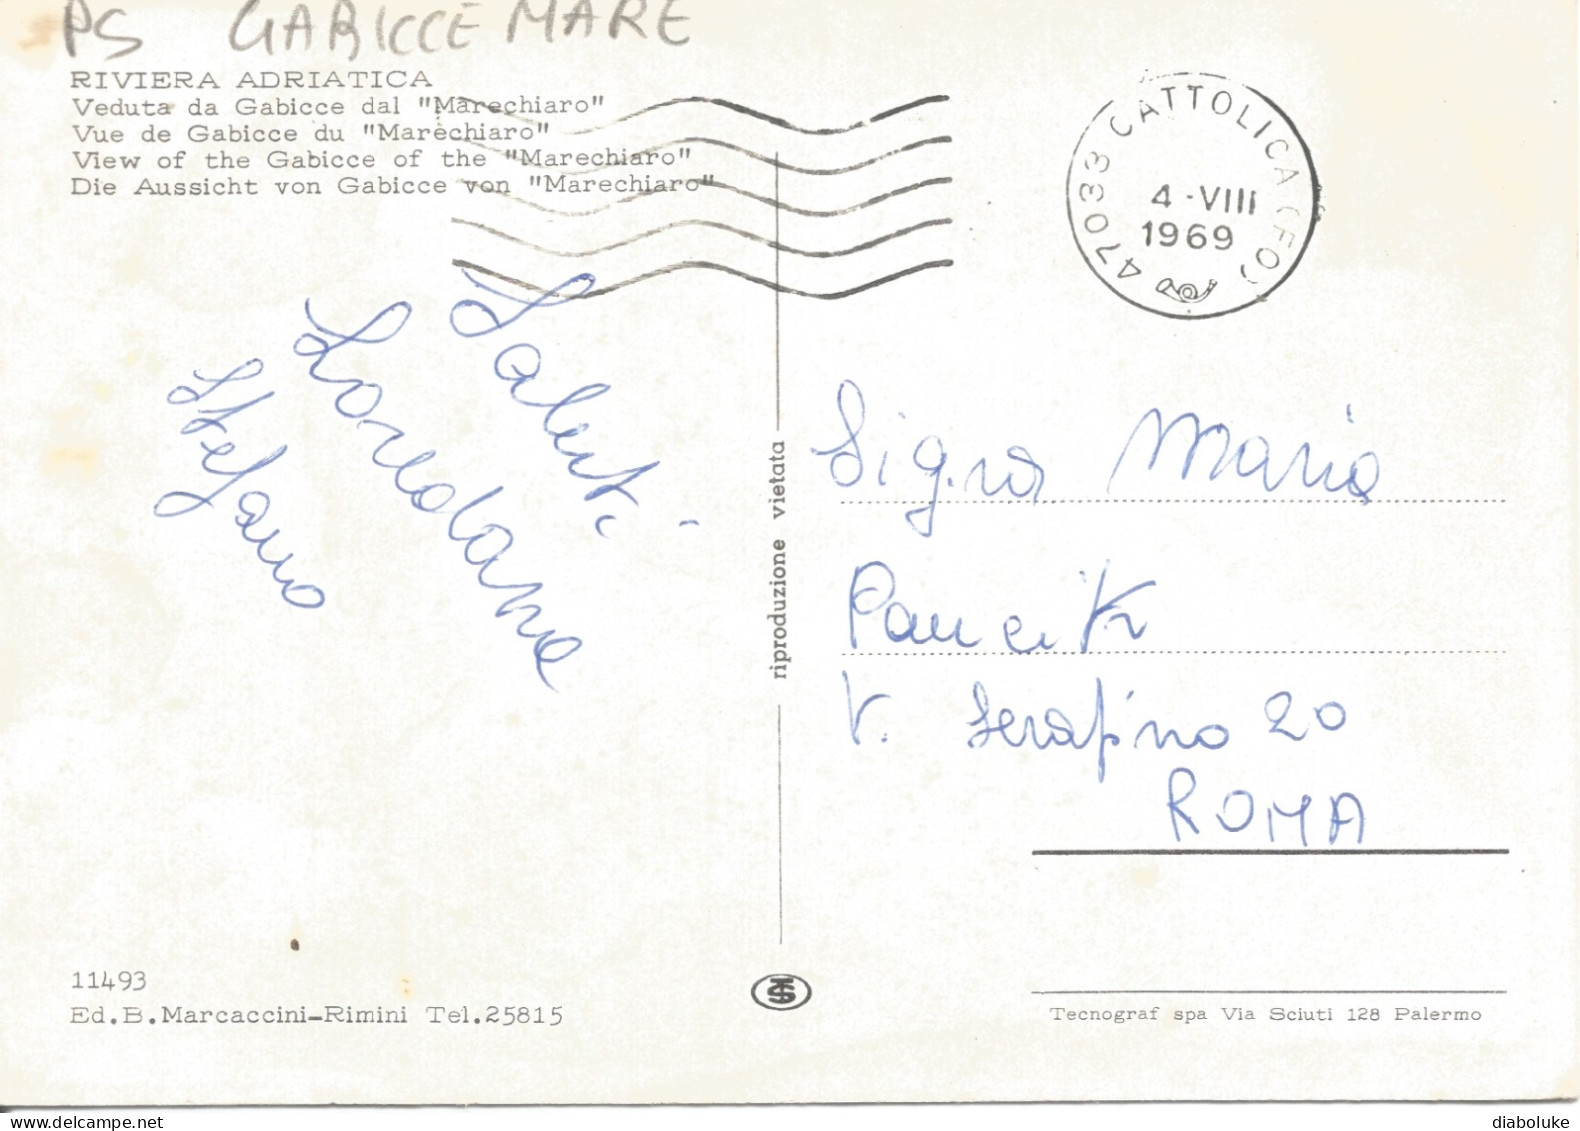 PS GABICCE MARE
RIVIERA ADRIATICA
Veduta da Gabicce dal "Marechiaro"
Vue de Gabicce du "Marèchiaro"
View of the Gabicce of the "Marechiaro"
Die Aussicht von Gabicce von "Marechiaro"
47033 CATTOLICA (FO)
4-VIII
1969
Saluti
Loredana
Stefano
riproduzione vietata
Sig.ra Maria
V. Serafino 20
ROMA
11493
Ed.B.Marcaccini-Rimini Tel.25815
Tecnograf spa Via Sciuti 128 Palermo
diaboluke